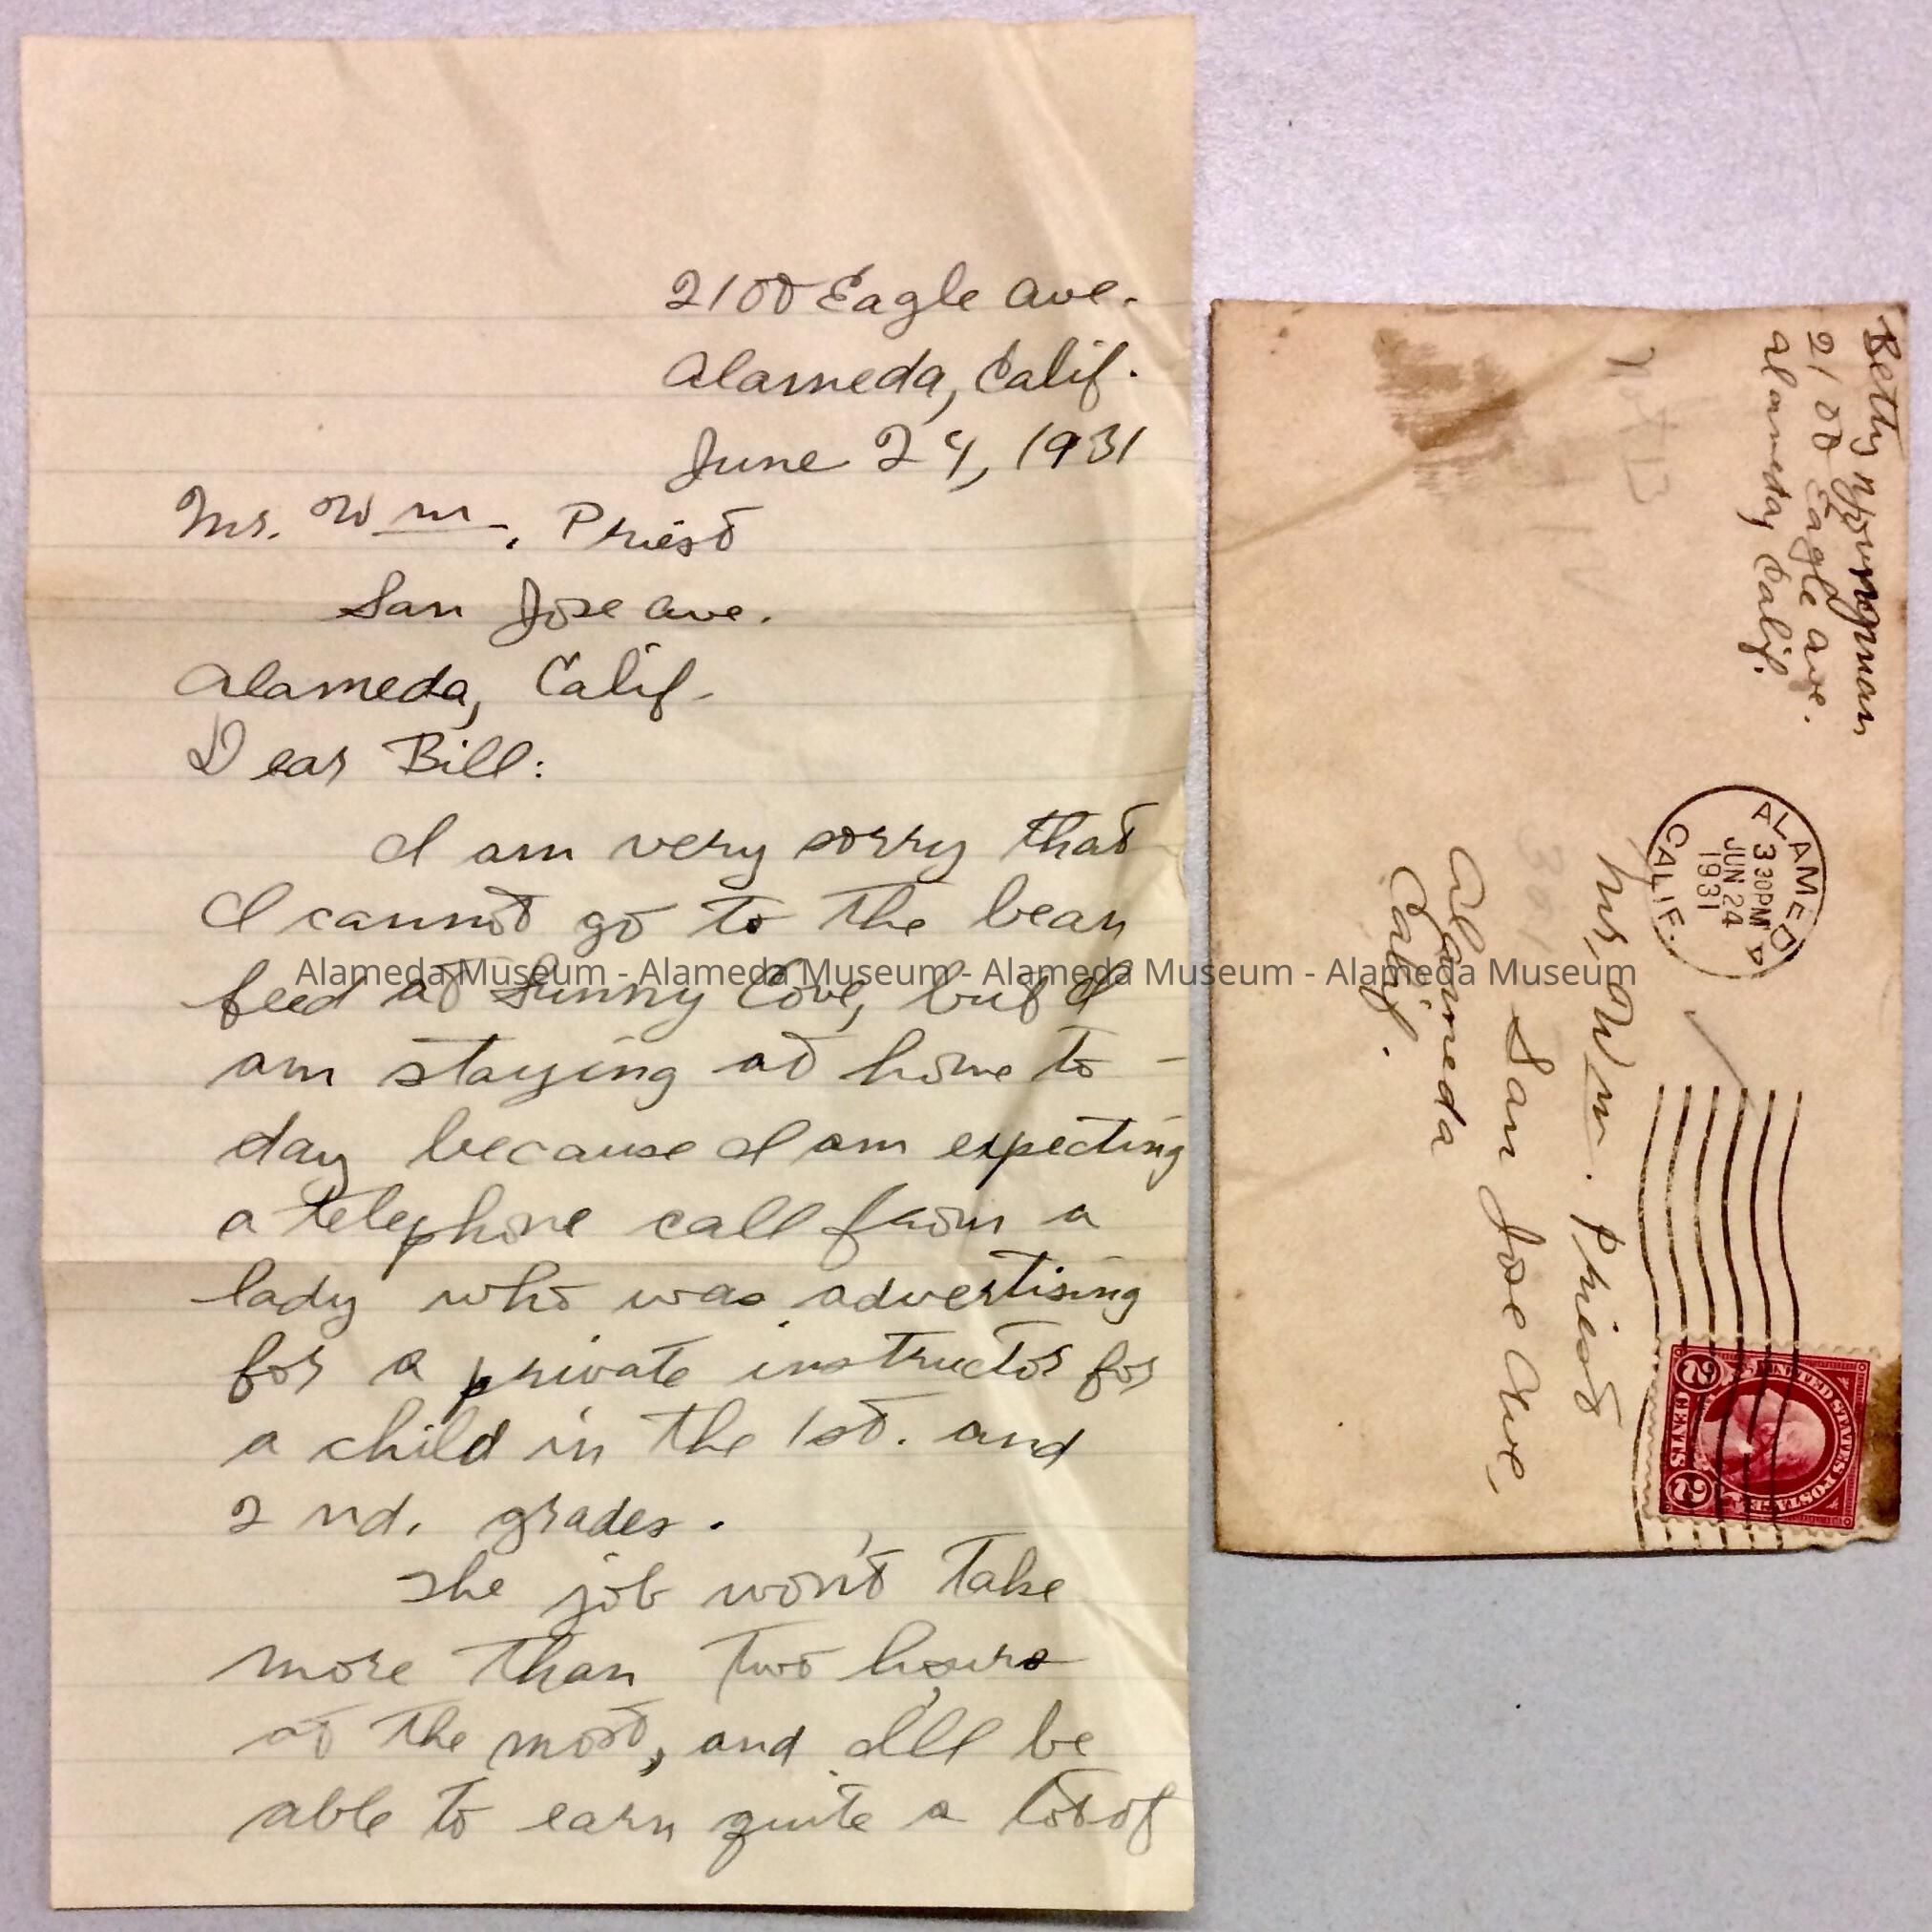 2100 Eagle Ave.
Alameda, Calif.
June 24, 1931
Mr. Wm. Priest
San Jose Ave.
Alameda, Calif.
Dear Bill:
I am very sorry that
I cannot go to the bean
feed at Sunny Cove, but I
am staying at home to-
day because I am expecting
a telephone call from a
lady who was advertising
for a private instructor for
a child in the 1st. and
2nd. grades.
The job won't take
more than two hours
at the most, and I'll be
able to earn quite a lot of
Alameda Museum - Alameda Museum - Alameda Museum - Alameda Museum
Betty
2100 Eagle Ave.
Alameda, Calif.
ALAMEDA
3 30PM
JUN 24
1931
CALIF.
Mr. Wm. Priest
San Jose Ave,
Alameda
Calif.
UNITED STATES POSTAGE
2 CENTS 2